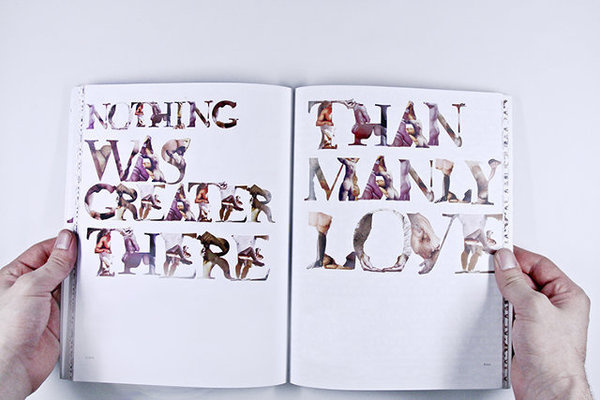 NOTHING
WAS
GREATER
THERE
THAN
MANLY
LOVE